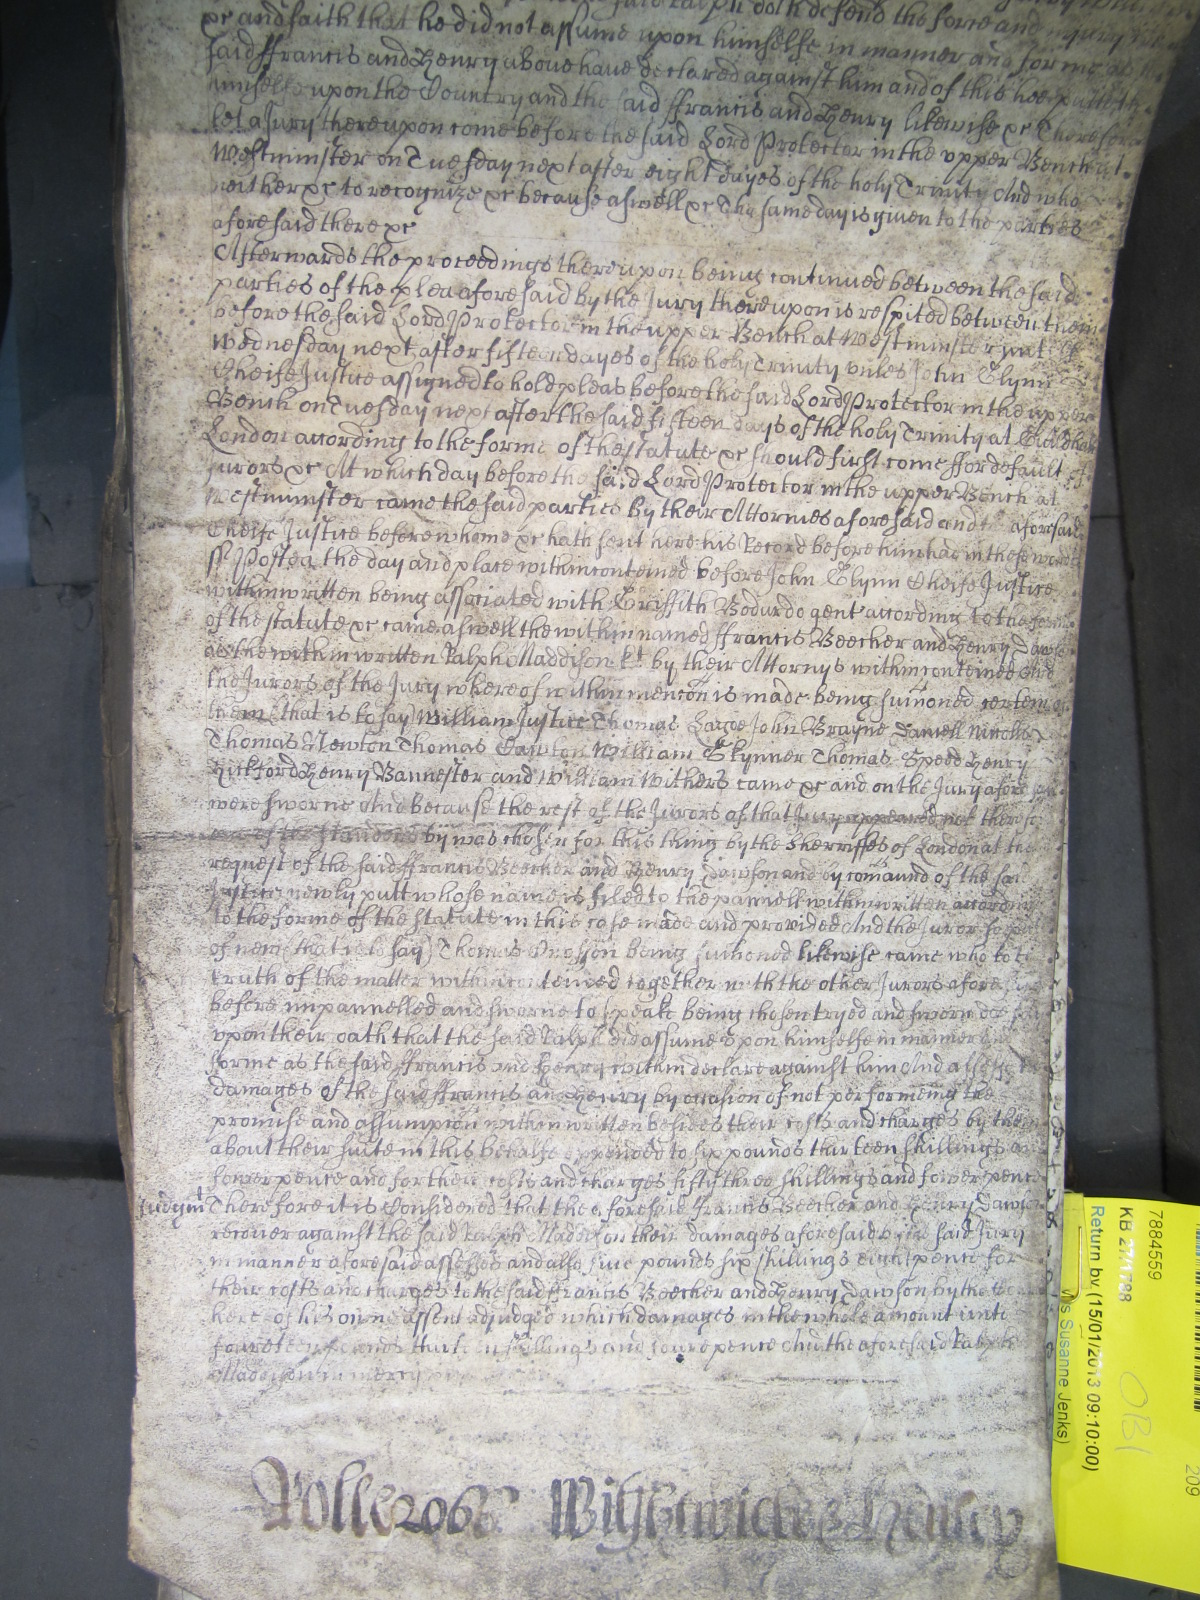 said Ralph doth defend the force and injury
&c and saith that he did not assume upon himselfe in manner and forme as the
said ffrancis and Henry above have declared against him and of this hee putteth
himselfe upon the Country and the said ffrancis and Henry likewise &c Therefore
let a Jury thereupon come before the said Lord Protector in the upper Bench at
Westminster on Tuesday next after eight dayes of the holy Trinity And who
neither &c to recognize &c because aswell &c The same day is given to the parties
aforesaid there &c
Afterwards the proceedings thereupon being continued between the said
parties of the plea aforesaid by the Jury thereupon is respited between them
before the said Lord Protector in the upper Bench at Westminster until
Wednesday next after fifteen dayes of the holy Trinity unles John Glynn
Cheife Justice assigned to hold pleas before the said Lord Protector in the upper
Bench on Tuesday next after the said fifteen days of the holy Trinity at Guildhall
London according to the forme of the statute &c should first come ffor default of
Jurors &c At which day before the said Lord Protector in the upper Bench at
Westminster came the said parties by their Attornies aforesaid and the aforesaid
Cheife Justice before whome &c hath sent here his Record before him had in these words
ss Postea the day and place within conteined before John Glynn Cheife Justice
within written being associated with Griffith Bodurdo gent according to the forme
of the statute &c came aswell the within named ffrancis Beecher and Henry Dawson
as the within written Ralph Maddison kt by their Attornys within conteined And
the Jurors of the Jury whereof within mencon is made being sumoned certein of
them (that is to say) William Justice Thomas John Brayne Daniell Nicolls
Thomas Newton Thomas Cawton William Skynner Thomas Speed Henry
Hickford Henry Bannester and William Withers came &c and on the Jury aforesaid
were sworne And because the rest of the Jurors of that Jury appeared not therefore
one of the standers by was chosen for this thing by the Sherriffes of London at the
request of the said ffrancis Beecher and Henry Dawson and by comaund of the said
Justice newly putt whose name is filed to the pannell within written according
to the forme of the statute in this case made and provided And the Juror soe putt
of new (that is to say) Thomas Crosson being sumoned likewise came who to the
truth of the matter within conteined together with the other Jurors aforesaid
before impannelled and sworne to speake being chosen tryed and sworn doe say
upon their oath that the said Ralph did assume upon himselfe in manner and
forme as the said ffrancis and Henry within declare against him And assesse the
damages of the said ffrancis and Henry by occasion of not performeing the
promise and assumpcon within written besides their costs and charges by them
about their suite in this behalfe expended to six pounds thirteen shillings and
fower pence and for their costs and charges fifti three shillings and fower pence
Judgmt Therefore it is Considered that the aforesaid ffrancis Beecher and Henry Dawson
recover against the said Ralph Maddison their damages aforesaid by the said Jury
in manner aforesaid assessed and also five pounds six shillings eight pence for
their costs and charges to the said ffrancis Beecher and Henry Dawson by the Court
here of his owne assent adjudged which damages in the whole amount unto
fourteen pounds thirteen shillings and foure pence And the aforesaid Ralph
Maddison in mercy
Rolle 2066 Wightwicke & Henley
7884559
KB 27/1788
Return by (15/01/2013 09:10:00)
s Susanne Jenks)
OBI
209